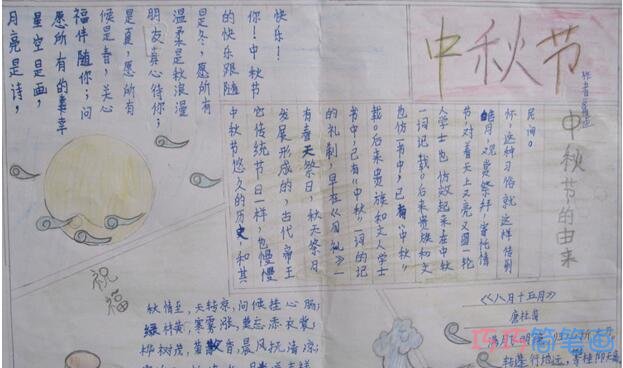 中秋节
月亮是诗，
星空是画，
愿所有的幸
福伴随你；问
候是春，关心
是夏，愿所有
朋友真心待你，
温柔是秋浪漫
是冬，愿所有
的快乐跟随
你！中秋节
快乐！
中秋节的由来
中秋节悠久的历史和其
它传统节日一样，也慢慢
发展形成的，古代帝王
有春天祭日，秋天祭日
的礼制，早在《周礼》一
书中，已有“中秋”一词的记
载。后来贵族和文人学士
也仿书中，已有“中秋”
一词记载。后来贵族和文
人学士也仿效起来在中秋
节对着天上又亮又圆一轮
皓月，观赏祭拜，寄托情
怀，这种习俗就这样传到
民间。
祝福
秋情至，天转凉，问候挂心肠；
绿林黄，寒雾涨，莫忘添衣裳；
桦树茂，黄散香，晨风抚清凉；
《八月十五月》
唐杜甫
满月飞明镜
转蓬行地远，攀桂仰天
巧巧简笔画